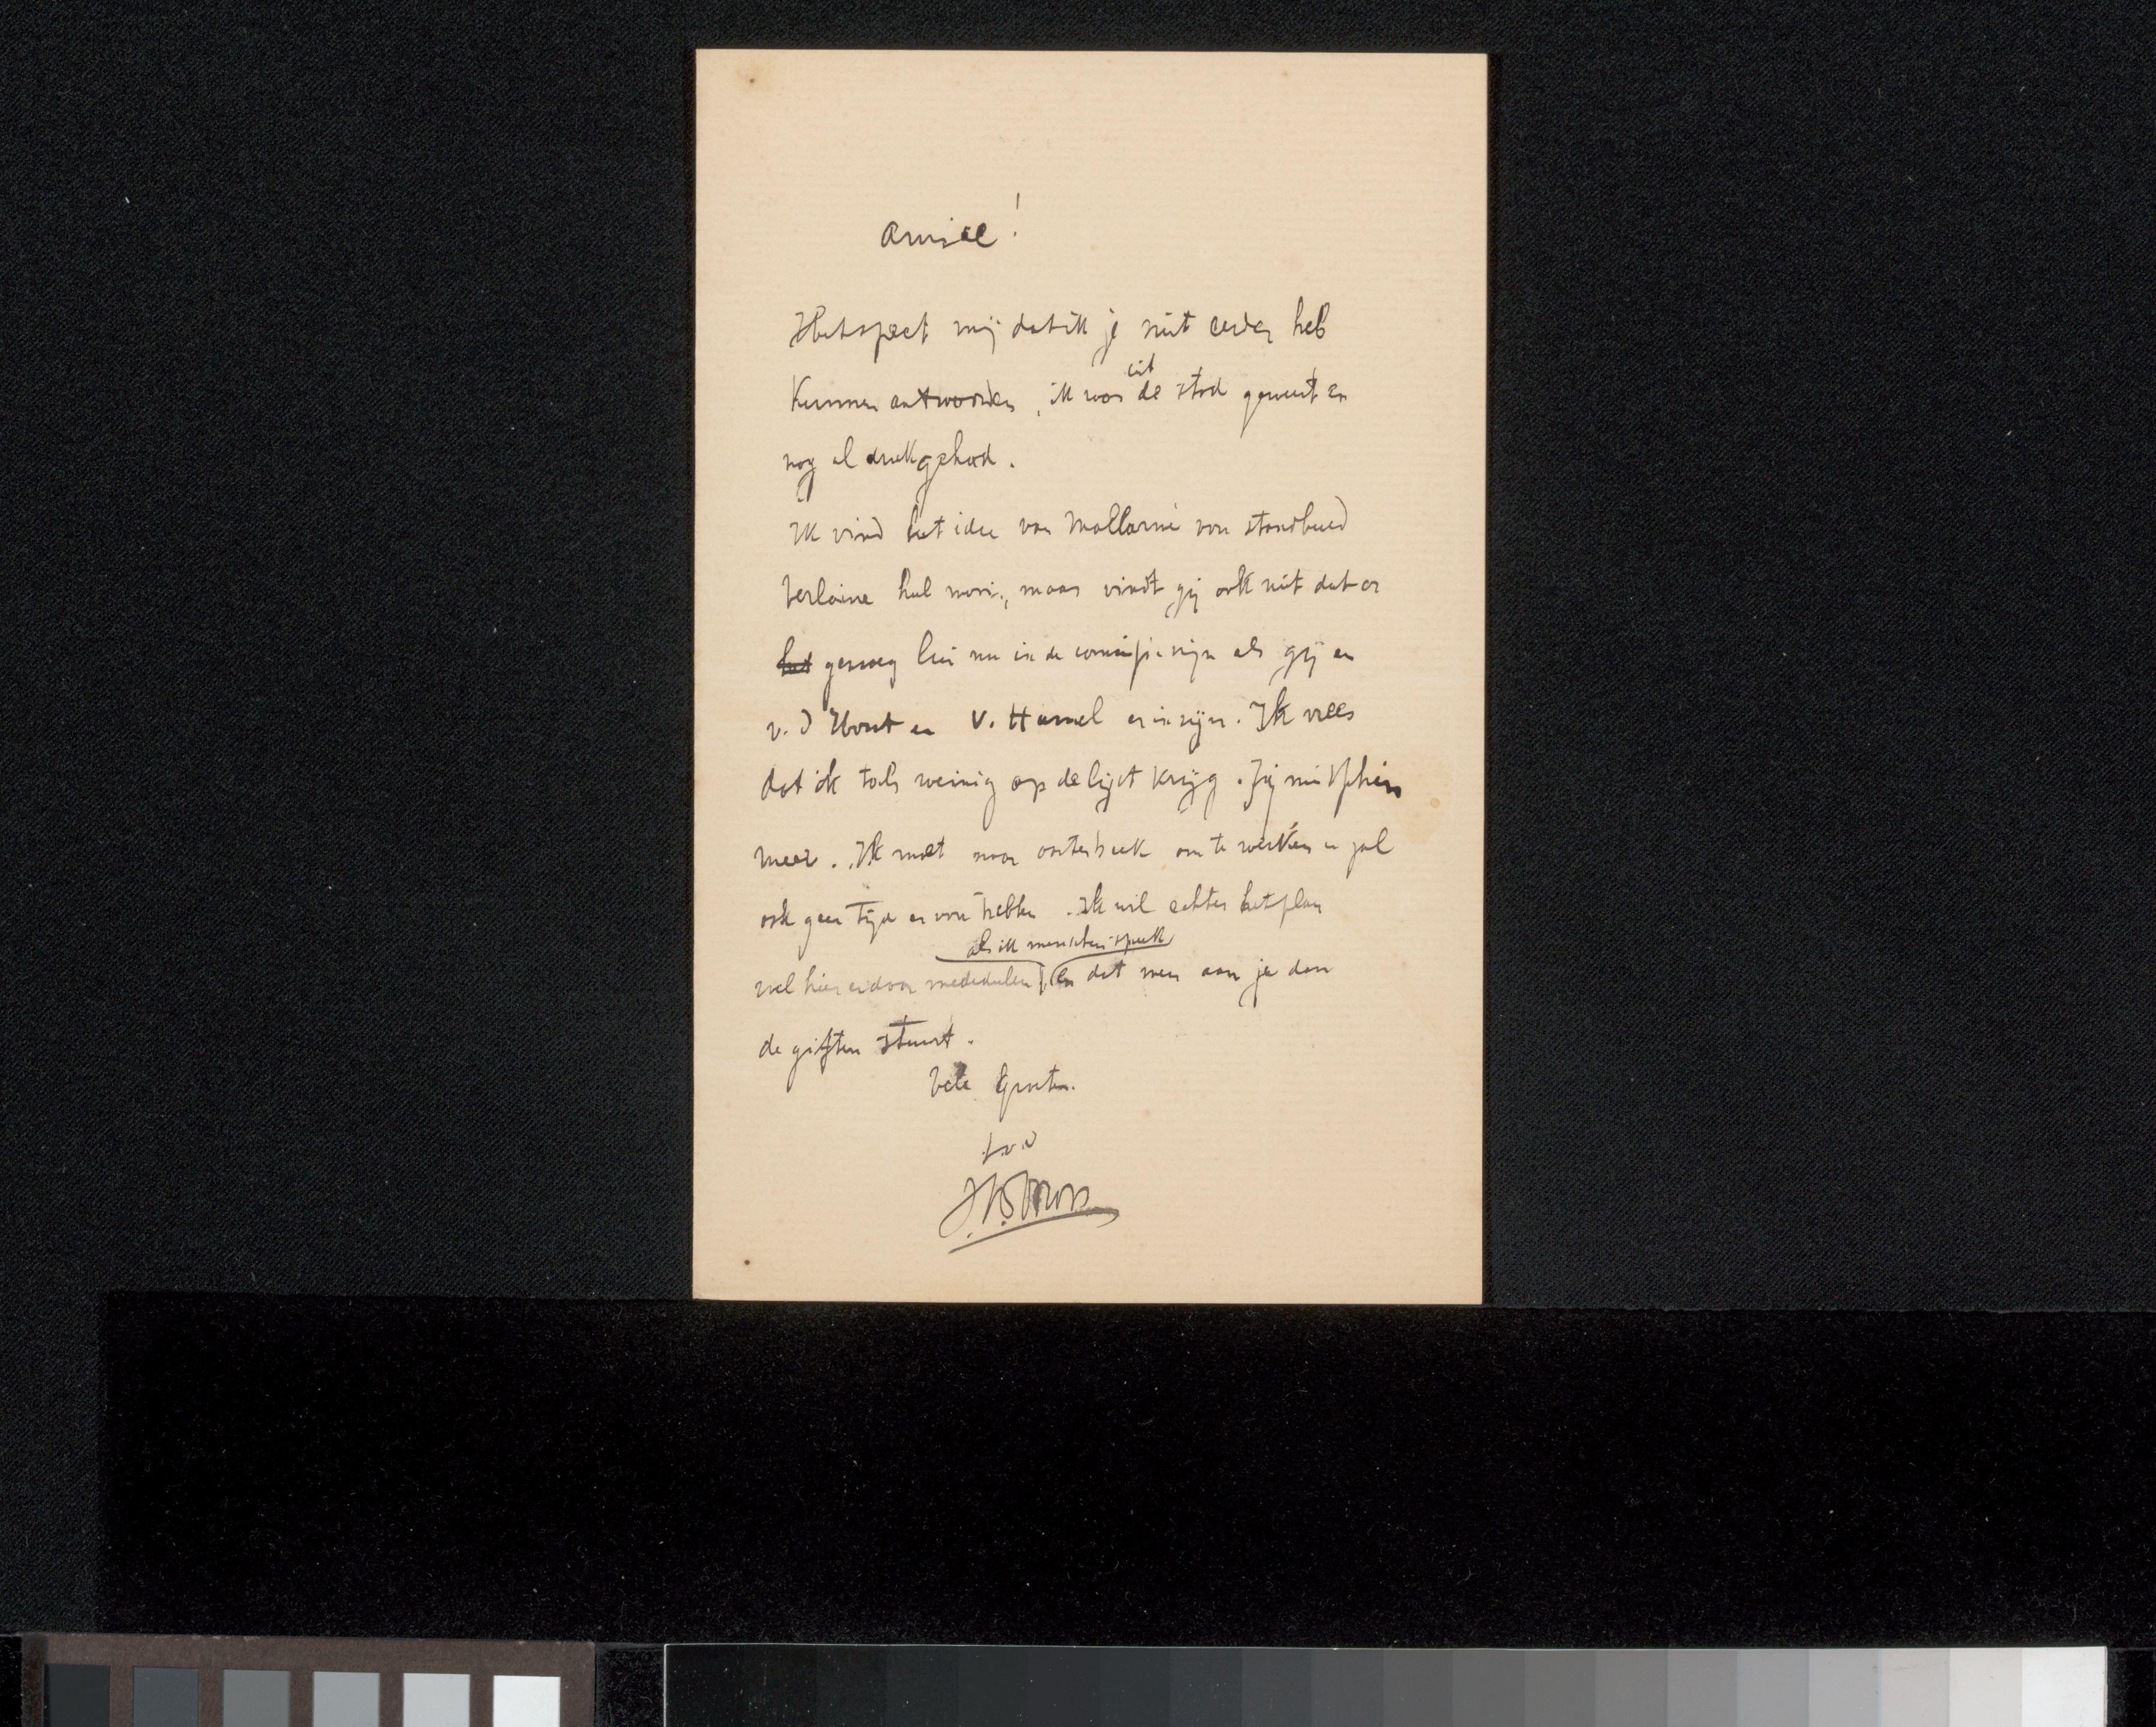 Amice!
Het speet mij dat ik je niet eerder heb
kunnen antwoorden, ik was uit de stad geweest en
nog al druk gehad.
Ik vind het idee van Mallarmé van standbeeld
Verlaine heel mooi, maar vindt gij ook niet dat er
het genoeg lui nu in de comissie zijn als gij en
v. d Hout en v. Hamel er in zijn. Ik vrees
dat ik toch weinig op de lijst krijg. Jij misschien
meer. Ik moet naar Oosterbeek om te werken en zal
ook geen tijd er voor hebben. Ik wil echter het plan
als ik menschen spreek
wel hier en daar mededeelen, en dat men aan je dan
de giften stuurt.
Vele Groeten.
t.v.